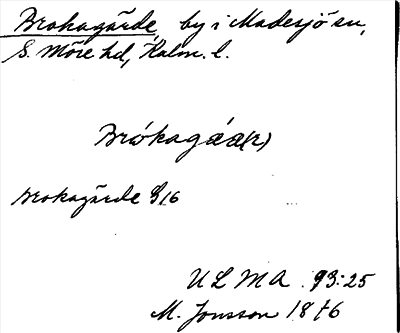 Brokagärde, by i Madesjö sn,
S. Möre hd, Kalm. l.
Brókagáa(r)
Brokagärde 816
ULMA 93:25
M. Jonsson 1876